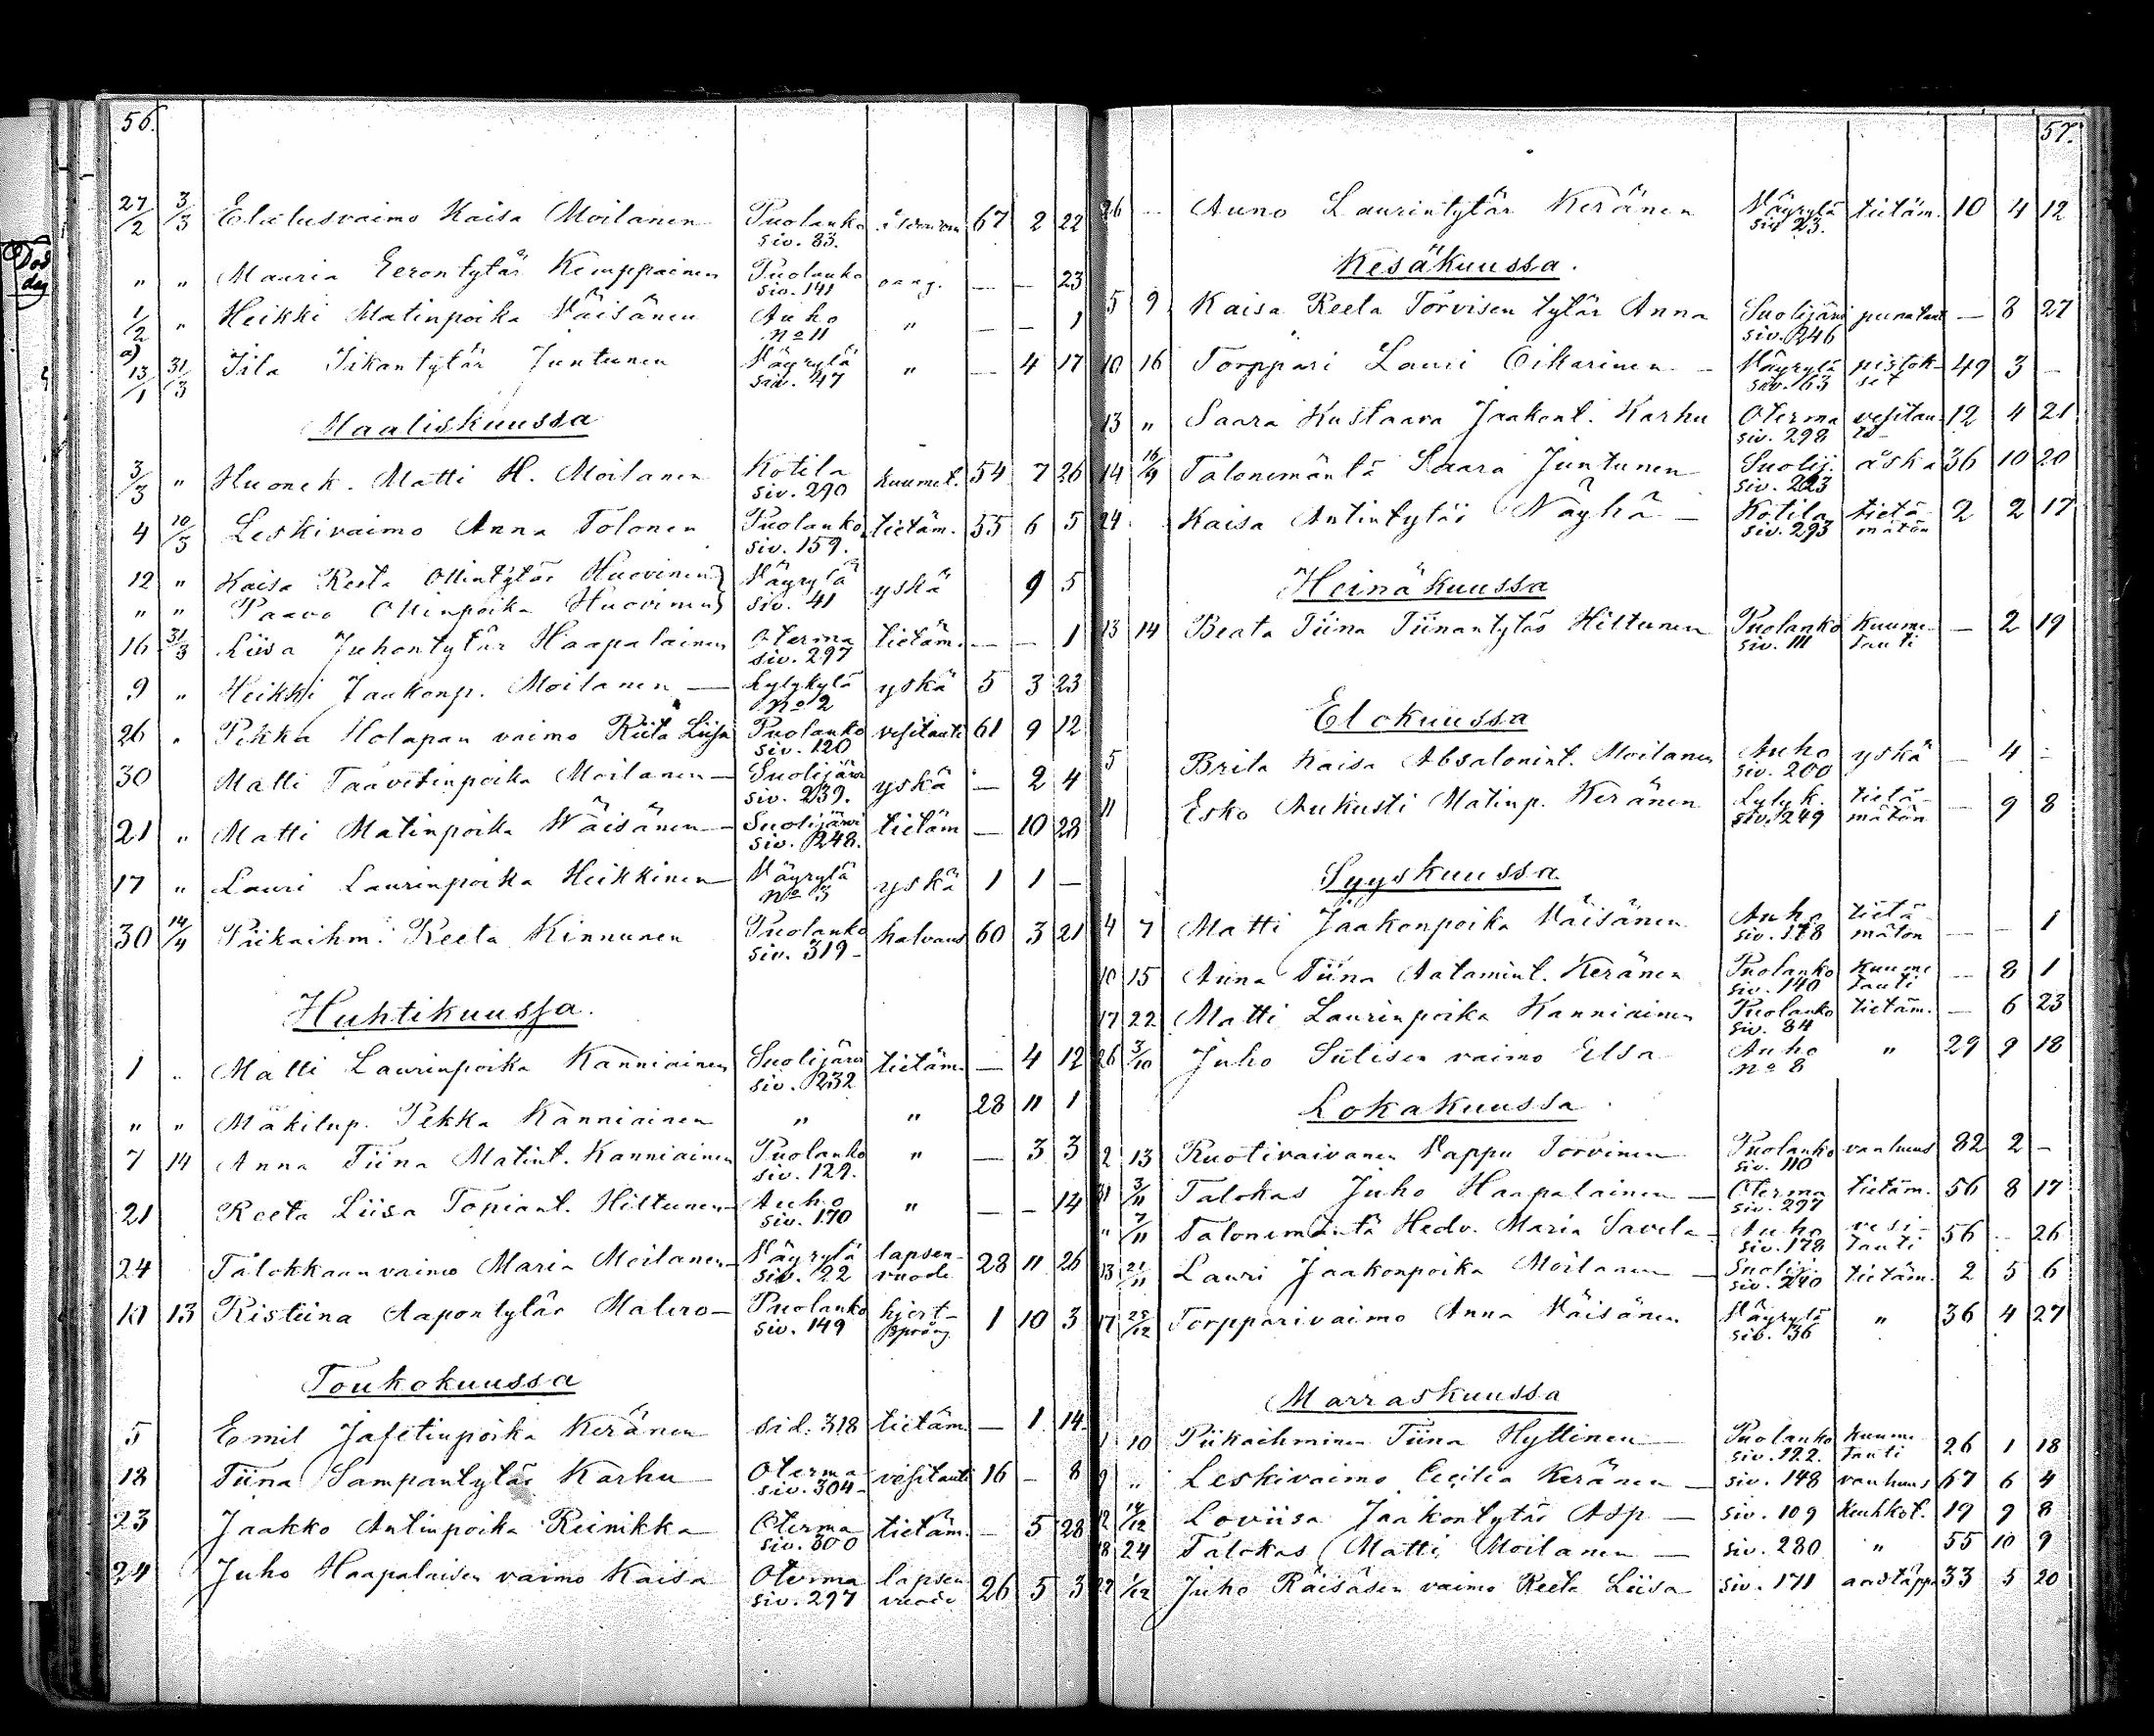 56.
27/2 3/3 Elätusvaimo Kaisa Moilanen Puolanko siv. 83. 67 2 22
" " Mauria Eerontytär Kemppainen Puolanko siv. 141 23
1/2 " Heikki Matinpoika Väisänen Auho No 11 " — — 1
a) 13/1 31/3 Iita Iikantytär Juntunen Väyrylä siv. 47 " — 4 17
Maaliskuussa
3/3 " Huonek. Matti H. Moilanen Kotila siv. 290 kuumet. 54 7 26
4 10/3 Leskivaimo Anna Tolonen Puolanko siv. 159. tietäm. 55 6 5
12 " Kaisa Reeta Ollintytär Huovinen Väyrylä siv. 41 yskä 9 5
" " Paavo Ollinpoika Huovinen
16 31/3 Liisa Juhontytär Haapalainen Oterma siv. 297 tietäm. — — 1
9 " Heikki Jaakonp. Moilanen — Lylykylä No 2 yskä 5 3 23
26 " Pekka Holapan vaimo Riita Liisa Puolanko siv. 120 vesitauti 61 9 12
30 Matti Taavetinpoika Moilanen — Suolijärvi siv. 239. yskä — 2 4
21 " Matti Matinpoika Väisänen — Suolijärvi siv. 248. tietäm — 10 28
17 " Lauri Laurinpoika Heikkinen — Väyrylä No 3 yskä 1 1 —
30 14/4 Piikaihm. Reeta Kinnunen Puolanko siv. 319 halvaus 60 3 21
Huhtikuussa.
1 " Matti Laurinpoika Kanniainen Suolijärvi siv. 232 tietäm. — 4 12
" " Mäkitup. Pekka Kanniainen " " 28 11 1
7 14 Anna Tiina Matint. Kanniainen Puolanko siv. 129. " — 3 3
21 Reeta Liisa Topiant. Hiltunen — Auho siv. 170 " — — 14
24 Talokkaan vaimo Maria Moilanen — Väyrylä siv. 22 lapsen-vuode 28 11 26
13 Ristiina Aapontytär Malero — Puolanko siv. 149 hjertspräng 1 10 3
Toukokuussa
5 Emil Jafetinpoika Keränen siv. 318 tietäm — 1 14
18 Tiina Sampantytär Karhu — Oterma siv. 304 vesitauti 16 — 8
23 Jaakko Antinpoika Reinikka — Oterma siv. 300 tietäm. — 5 28
24 Juho Haapalaisen vaimo Kaisa Oterma siv. 297 lapsen vuode 26 5 3
57.
26 — Auno Laurintytär Keränen Väyrylä siv 23. tietäm. 10 4 12
Kesäkuussa.
5 9 Kaisa Reeta Torvisen tytär Anna Suolijärvi siv. 246 punataut — 8 27
10 16 Torppari Lauri Oikarinen — Väyrylä siv. 63 pistok-set 49 3 —
13 " Saara Kustaava Jaakont. Karhu Oterma siv. 298 vesitau- 12 4 21
14 Talonemäntä Saara Juntunen Suolij. siv. 223 äska 36 10 20
24 Kaisa Antintytär Näyhä — Kotila siv. 293 tietä-mätön 2 2 17
Heinäkuussa
13 14 Beata Tiina Tiinantytär Hiltunen Puolanko siv. 111 Kuume-tauti — 2 19
Elokuussa
5 Brita Kaisa Absalonint. Moilanen Auho siv. 200 yskä — 4 —
11 Esko Aukusti Matinp. Keränen Lylyk. siv. 249 tietä-mätön — 9 8
Syyskuussa
4 7 Matti Jaakonpoika Väisänen Auho siv. 178 tietä-mätön — — 1
10 15 Anna Tiina Aatamint. Keränen Puolanko siv. 140 kuume tauti — 8 1
17 22 Matti Laurinpoika Kanniainen Puolanko siv. 84 tietäm. — 6 23
26 3/10 Juho Sutisen vaimo Elsa Auho No 8 " 29 9 18
Lokakuussa
2 13 Ruotivaivanen Vappu Torvinen Puolanko siv. 110 vanhuus 82 2 —
31 3/11 Talokas Juho Haapalainen — Oterma siv. 297 tietäm. 56 8 17
" 7/11 Talonemäntä Hedv. Maria Savela — Auho siv. 178 vesi-tauti 56 — 26
13 21/11 Lauri Jaakonpoika Moilanen — Suolij. siv. 240 tietäm. 2 5 6
17 25/12 Torpparivaimo Anna Väisänen Väyrylä siv. 36 " 36 4 27
Marraskuussa
1 10 Piikaihminen Tiina Hyttinen — Puolanko siv. 122. kuume tauti 26 1 18
9 " Leskivaimo Cecilia Keränen — siv. 148 vanhuus 67 6 4
12 14/12 Loviisa Jaakontytär Asp — siv. 109 keuhkot. 19 9 8
18 24 Talokas Matti Moilanen — siv. 280 " 55 10 9
27 1/12 Juho Räisäsen vaimo Reeta Liisa siv. 171 andtäppa 33 5 20